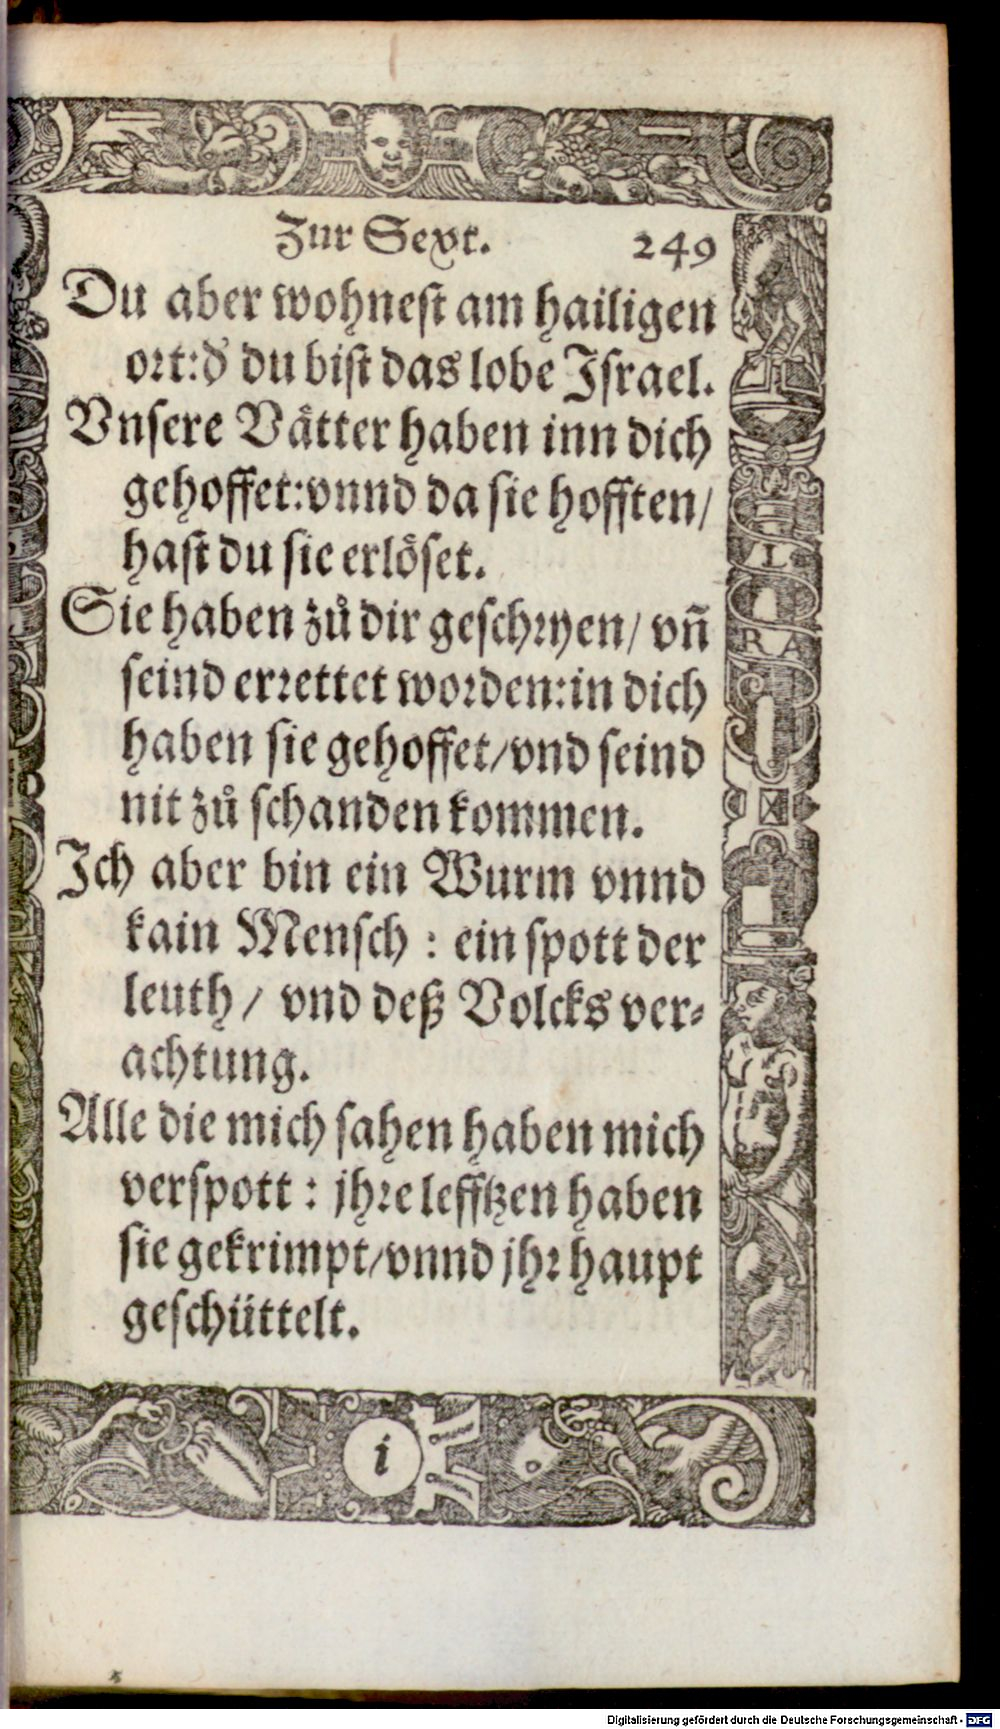 Zur Sext. 249
Du aber wohnest am hailigen
ort:đ du bist das lobe Israel.
Vnsere Vaͤtter haben inn dich
gehoffet:vnnd da sie hofften/
hast du sie erloͤset.
Sie haben zuͦ dir geschryen/ vñ
seind errettet worden:in dich
haben sie gehoffet/vnd seind
nit zuͦ schanden kommen.
Ich aber bin ein Wurm vnnd
kain Mensch : ein spott der
leuth / vnd deß Volcks ver⸗
achtung.
Alle die mich sahen haben mich
verspott : jhre lefftzen haben
sie gekrimpt/vnnd jhr haupt
geschüttelt.
L
R A
i
Digitalisierung gefördert durch die Deutsche Forschungsgemeinschaft - DFG